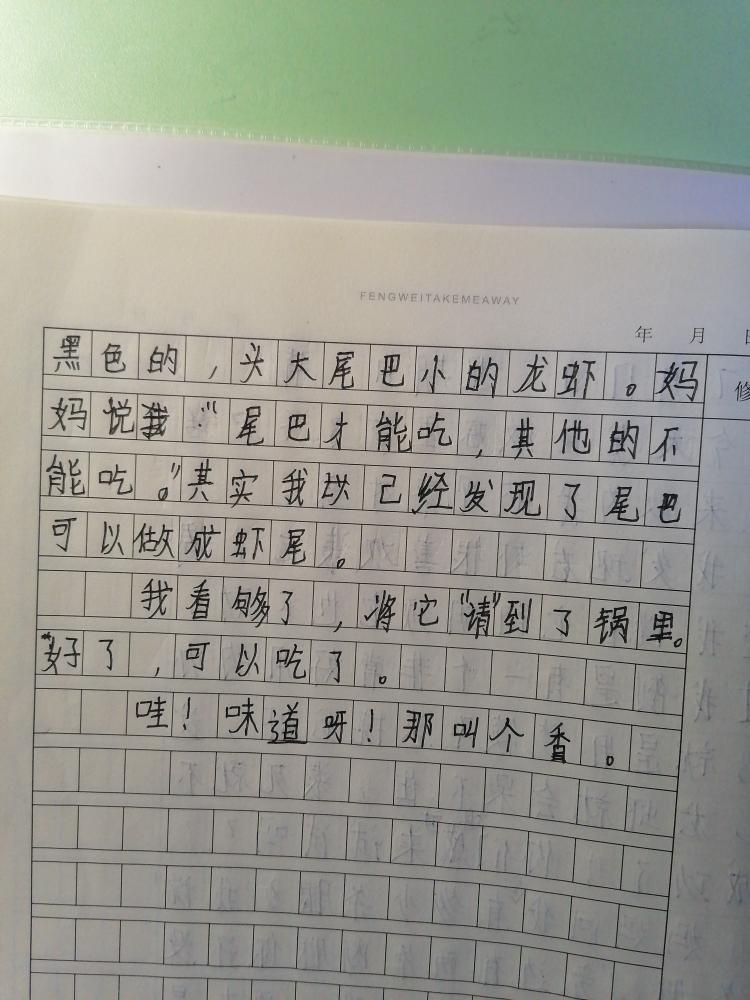 FENGWEITAKEMEAWAY
年 月 日
黑色的，头大尾巴小的龙虾。妈 修
妈说我："尾巴才能吃，其他的不
能吃。"其实我以己经发现了尾巴
可以做成虾尾。
我看够了，将它"请"到了锅里。
"好了，可以吃了。
哇！味道呀！那叫个香。